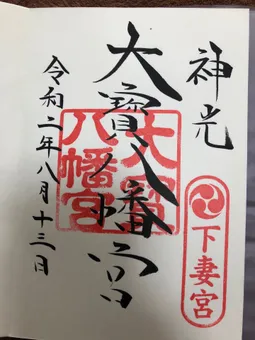 神光
下妻宮
大寶八幡宮
大寶
八幡宮
令和二年八月十三日